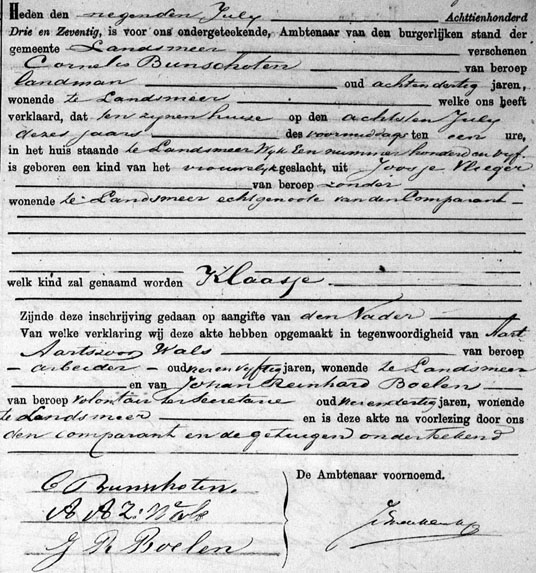 Heden den negenden July Achttienhonderd
Drie en Zeventig, is voor ons ondergeteekende, Ambtenaar van den burgerlijken stand der
gemeente Landsmeer verschenen
Cornelis Bunschoten van beroep
landman oud achtendertig jaren,
wonende te Landsmeer welke ons heeft
verklaard, dat ten zynen huise op den achtsten July
dezes jaars des voormiddags ten een ure,
in het huis staande te Landsmeer Wyk Een nummer honderd en vyf.
is geboren een kind van het vrouwelyk geslacht, uit Joosje Vlieger
van beroep zonder
wonende te Landsmeer echtgenoote van den Comparant
welk kind zal genaamd worden Klaasje
Zijnde deze inschrijving gedaan op aangifte van den Vader
Van welke verklaring wij deze akte hebben opgemaakt in tegenwoordigheid van Aart
Aartszoon Wals van beroep
arbeider oud vyftig jaren, wonende te Landsmeer
en van Johan Reinhard Boelen
van beroep volontair ter Secretarie oud dertig jaren, wonende
te Landsmeer en is deze akte na voorlezing door ons
den comparant en de getuigen onderteekend
De Ambtenaar voornoemd.
C Bunschoten.
A A Z: Wals
J R Boelen